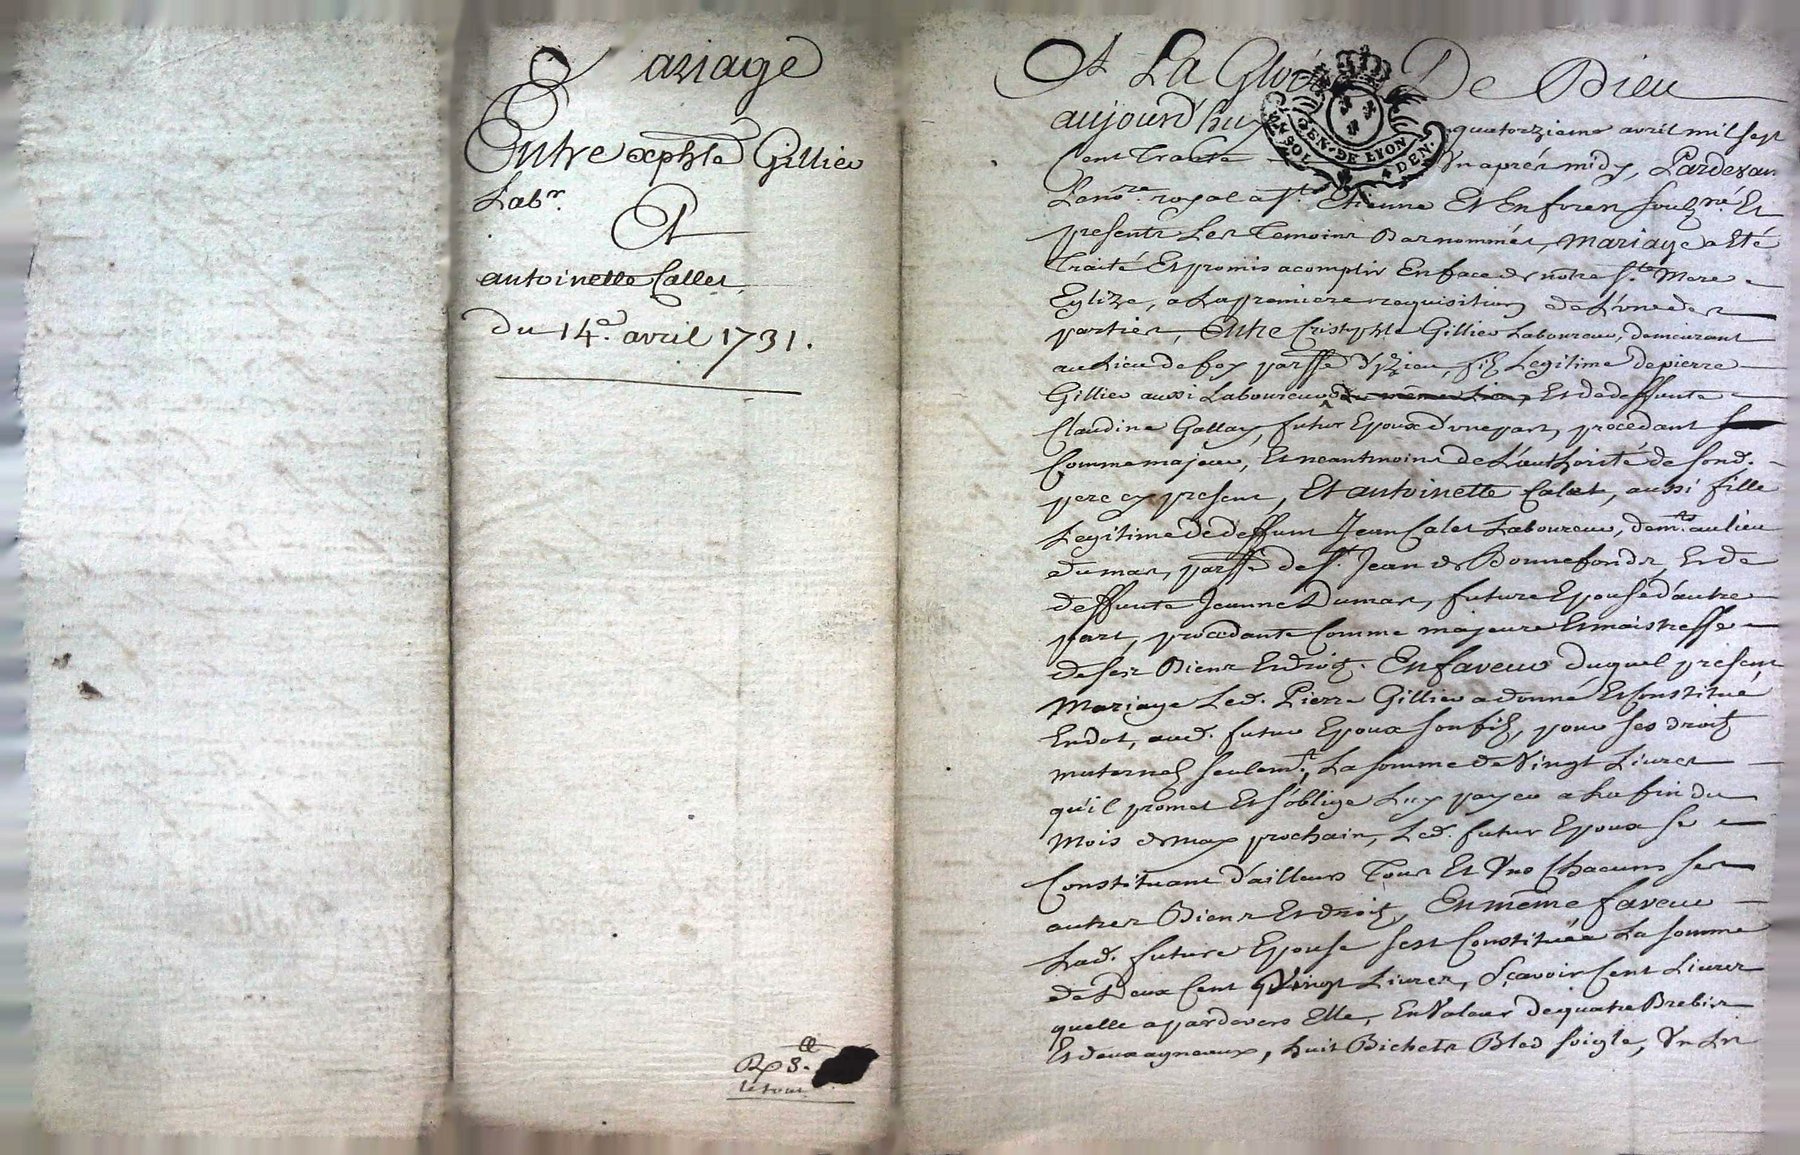 Mariage
Entre xphle Gillier
Labr.
Et
antoinette Callet
du 14e. avril 1731.
Rp 8.
A La Gloire De Dieu
aujourd'huy quatorzieme avril mil sept
Cent Trante Un aprés midy, Pardevan
Le nore. royal a St. Etienne Et En forez souzné. Et
presents Les Temoins Bas nommés, Mariage a Eté
Traité Et promis acomplir En face de notre Ste. Mere
Eglize, a La premiere requisition de L'une des
parties, Entre Cristophle Gillier Laboureur, demeurant
au Lieu de foy parsse d'yzieu, filz Legitime de pierre
Gillier aussi Laboureur du même Lieu, Et de deffunte
Claudine Gallay, futur Epoux d'une part, procedant
Comme majeur, Et neantmoins de L'authorité de sond.
pere cy present, Et antoinette Calet, aussi fille
Legitime de deffunt Jean Calet Laboureur, demts au lieu
du mas, parsse de St. Jean de Bonnefonds, Et de
deffunte Jeanne Dumas, future Epouse d'autre
part, procedante Comme majeure Et maistresse
de ses Biens Et droitz. En faveur duquel présent
Mariage Led. Pierre Gillier a donné Et Constitué
En dot, aud. futur Epoux son filz, pour ses droitz
maternelz seulemt., La somme de Vingt Livres
qu'il promet Et s'oblige Luy payer a la fin du
Mois de may prochain, Led. futur Epoux se
Constituant d'ailleurs Tous Et Uns Chacuns ses
autres Biens Et droitz, En même faveur
Lad. future Epouse s'est Constituée La somme
de Deux Cent Vingt Livres, Sçavoir Cent Livres
quelle a pardevers Elle, En Valeur de quatre Brebis
Et deux agneaux, huit Bichets Bled soigle, Un Lit